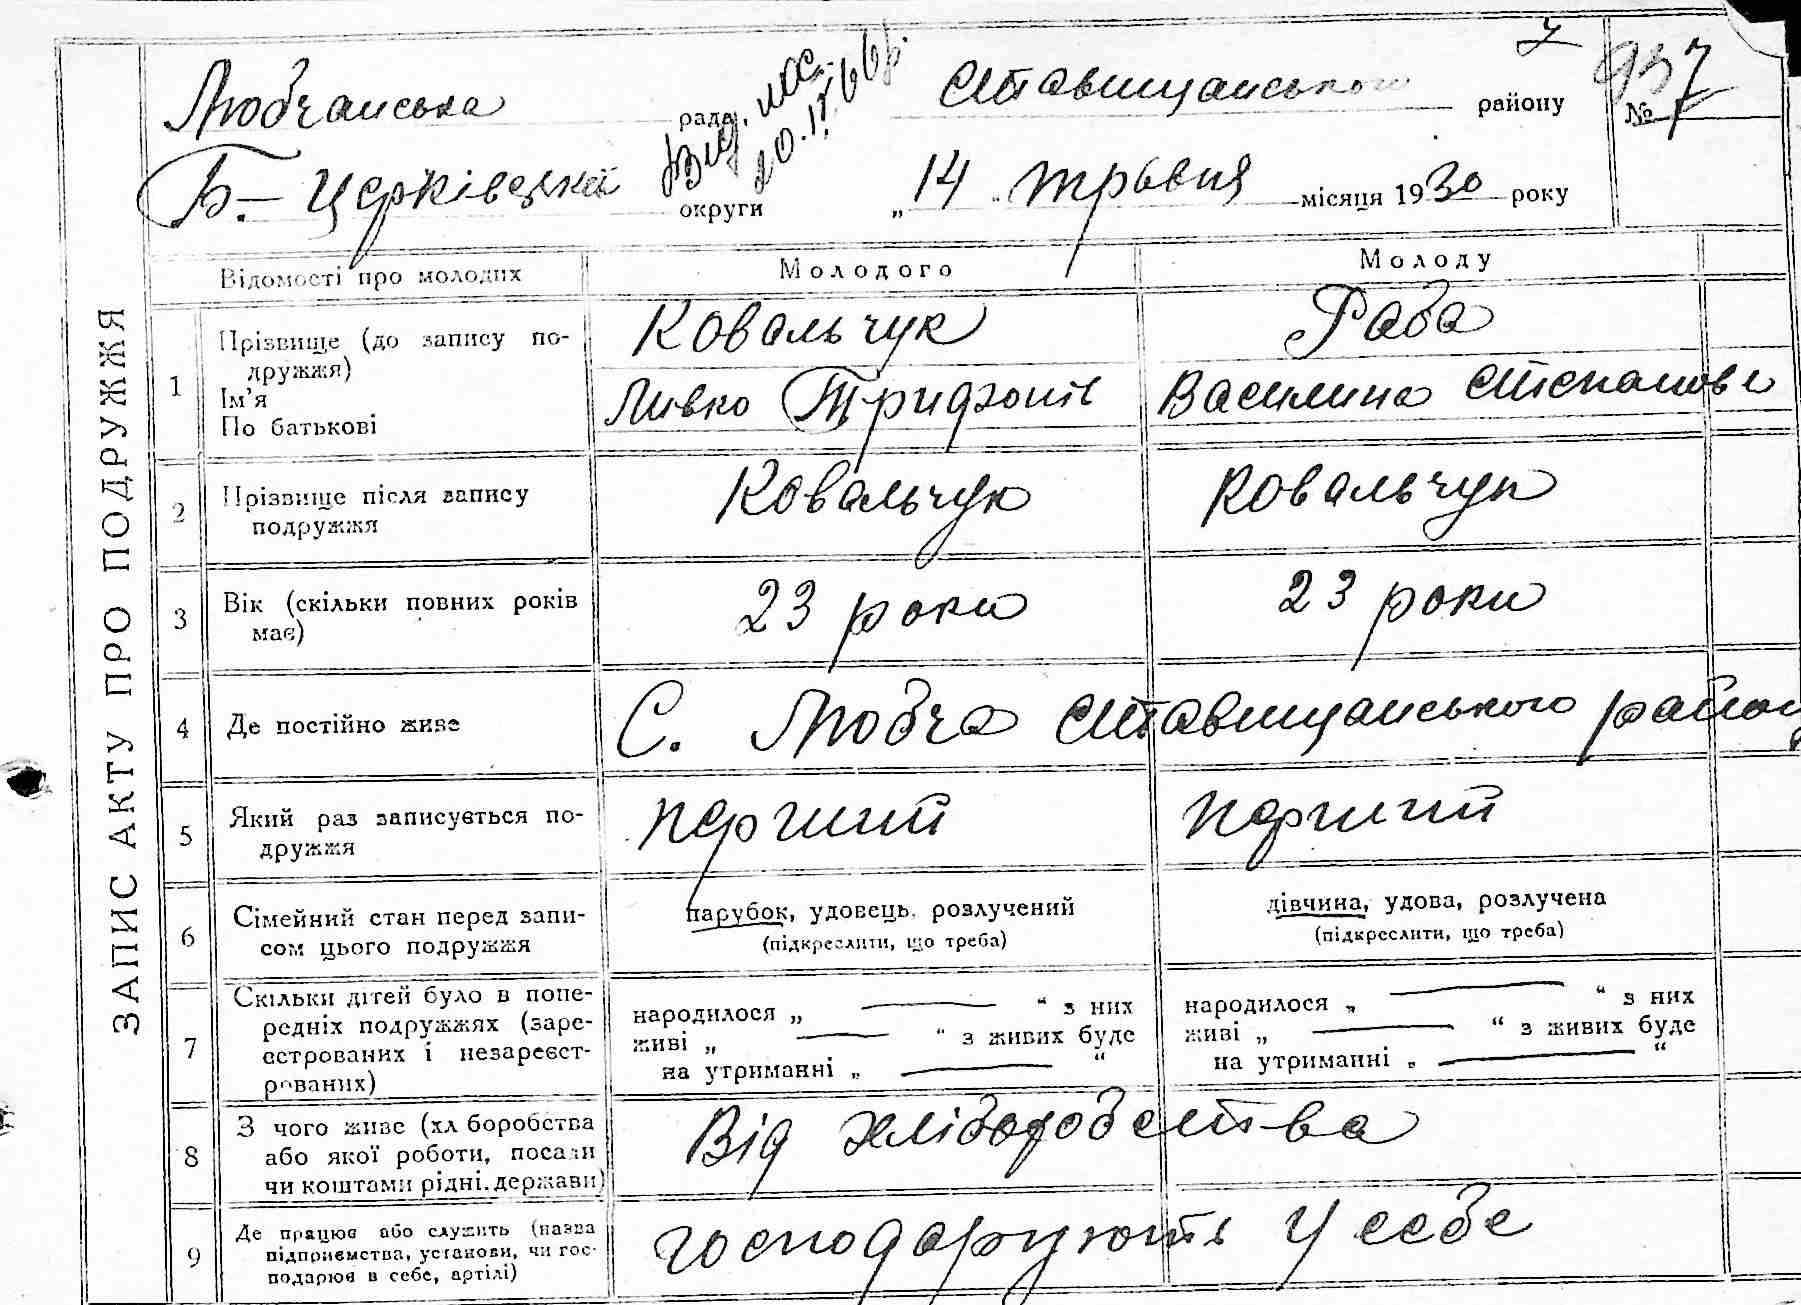 7
Любчанська рада Ставищанського району № 7
937
Від. пас.
20.IV.66р.
Б.-Церківської округи „14“ травня місяця 1930 року
ЗАПИС АКТУ ПРО ПОДРУЖЖЯ
Відомості про молодих Молодого Молоду
1 Прізвище (до запису по- Ковальчук Раба
дружжя)
Ім'я Ливко Тридзонів Василина Степанова
По батькові
2 Прізвище після запису Ковальчук Ковальчук
подружжя
3 Вік (скільки повних років 23 роки 23 роки
має)
4 Де постійно живе С. Любча Ставищанського району
5 Який раз записується по- перший перший
дружжя
6 Сімейний стан перед запи- парубок, удовець, розлучений дівчина, удова, розлучена
сом цього подружжя (підкреслити, що треба) (підкреслити, що треба)
7 Скільки дітей було в попе- народилося „ — “ з них народилося „ — “ з них
редніх подружжях (заре- живі „ — “ з живих буде живі „ — “ з живих буде
єстрованих і незареєст- на утриманні „ — “ на утриманні „ — “
рованих)
8 З чого живе (хліборобства Від хліборобства
або якої роботи, посади
чи коштами рідні, держави)
9 Де працює або служить (назва господарюють у себе
підприємства, установи, чи гос-
подарює в себе, артілі)